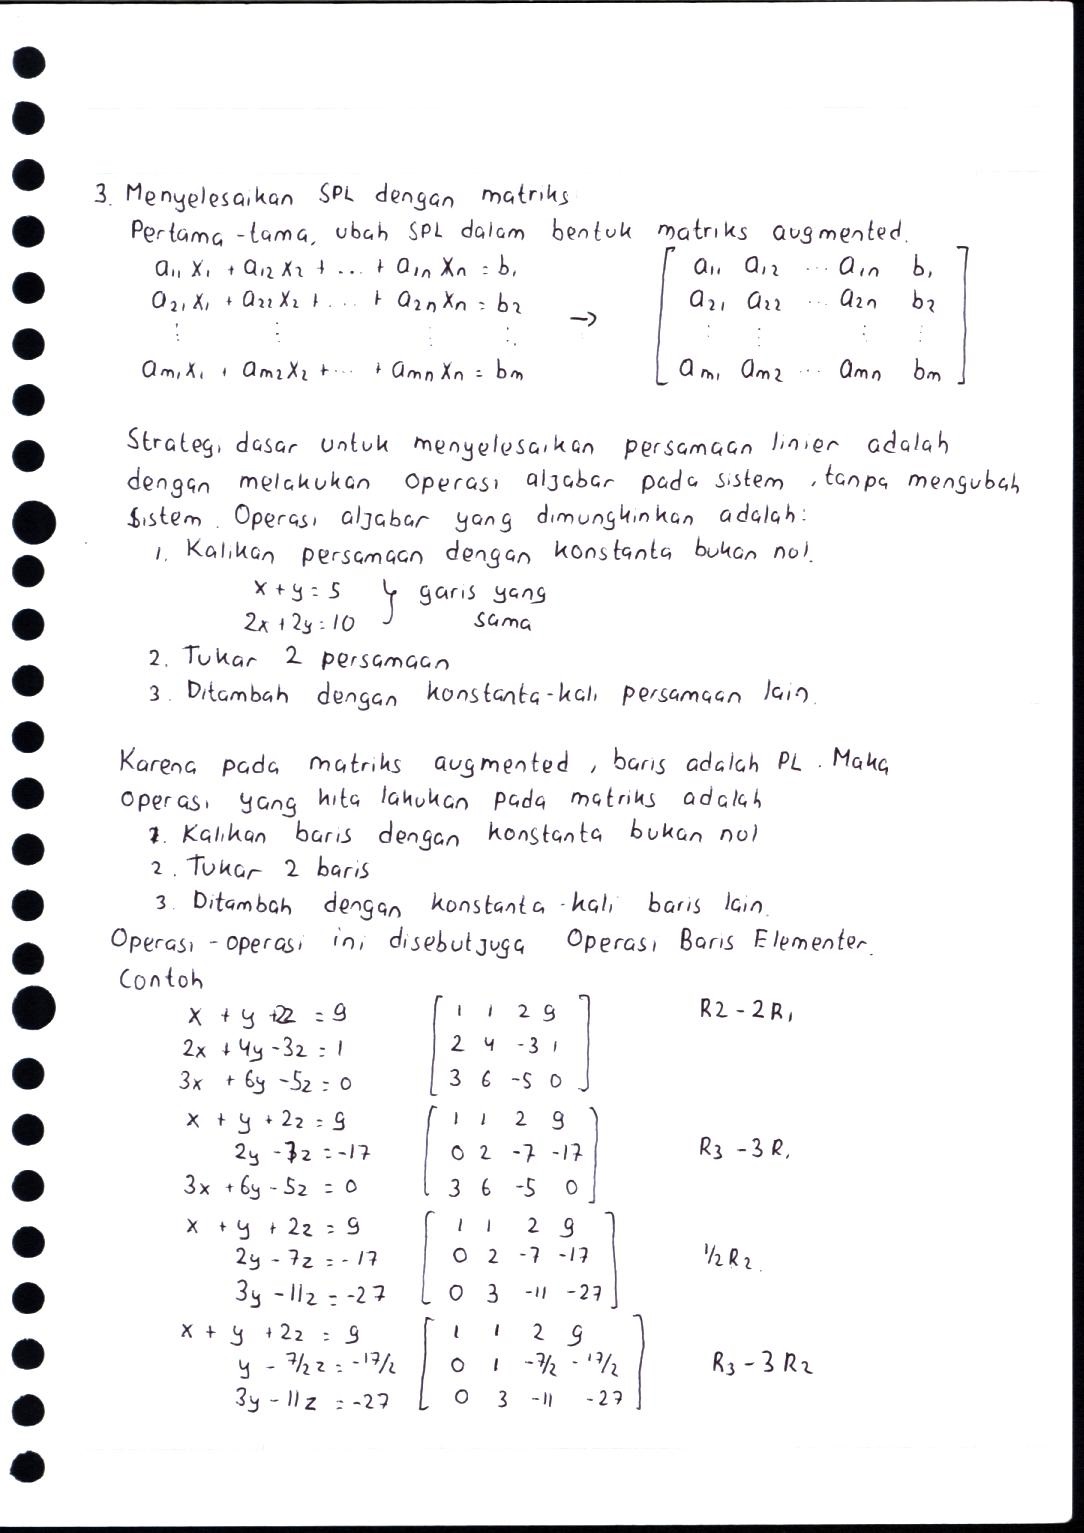 3. Menyelesaikan SPL dengan matriks
Pertama-tama, ubah SPL dalam bentuk matriks augmented.
a11 x1 + a12 x2 + ... + a1n xn = b1 → [ a11 a12 ... a1n b1
a21 x1 + a22 x2 + ... + a2n xn = b2 a21 a22 ... a2n b2
⋮ ⋮ ⋮ ⋱ ⋮ ⋮ ⋮ ⋮
am1 x1 + am2 x2 + ... + amn xn = bm am1 am2 ... amn bm ]
Strategi dasar untuk menyelesaikan persamaan linier adalah
dengan melakukan operasi aljabar pada sistem, tanpa mengubah
sistem. Operasi aljabar yang dimungkinkan adalah:
1. Kalikan persamaan dengan konstanta bukan nol.
x + y = 5 } garis yang
2x + 2y = 10 sama
2. Tukar 2 persamaan
3. Ditambah dengan konstanta-kali persamaan lain.
Karena pada matriks augmented, baris adalah PL. Maka
operasi yang kita lakukan pada matriks adalah
1. Kalikan baris dengan konstanta bukan nol
2. Tukar 2 baris
3. Ditambah dengan konstanta-kali baris lain.
Operasi-operasi ini disebut juga Operasi Baris Elementer.
Contoh
x + y + 2z = 9 [ 1 1 2 9 R2 - 2R1
2x + 4y - 3z = 1 2 4 -3 1
3x + 6y - 5z = 0 3 6 -5 0 ]
x + y + 2z = 9 [ 1 1 2 9
2y - 7z = -17 0 2 -7 -17 R3 - 3R1
3x + 6y - 5z = 0 3 6 -5 0 ]
x + y + 2z = 9 [ 1 1 2 9
2y - 7z = -17 0 2 -7 -17 1/2 R2.
3y - 11z = -27 0 3 -11 -27 ]
x + y + 2z = 9 [ 1 1 2 9
y - 7/2 z = -17/2 0 1 -7/2 -17/2 R3 - 3 R2
3y - 11z = -27 0 3 -11 -27 ]